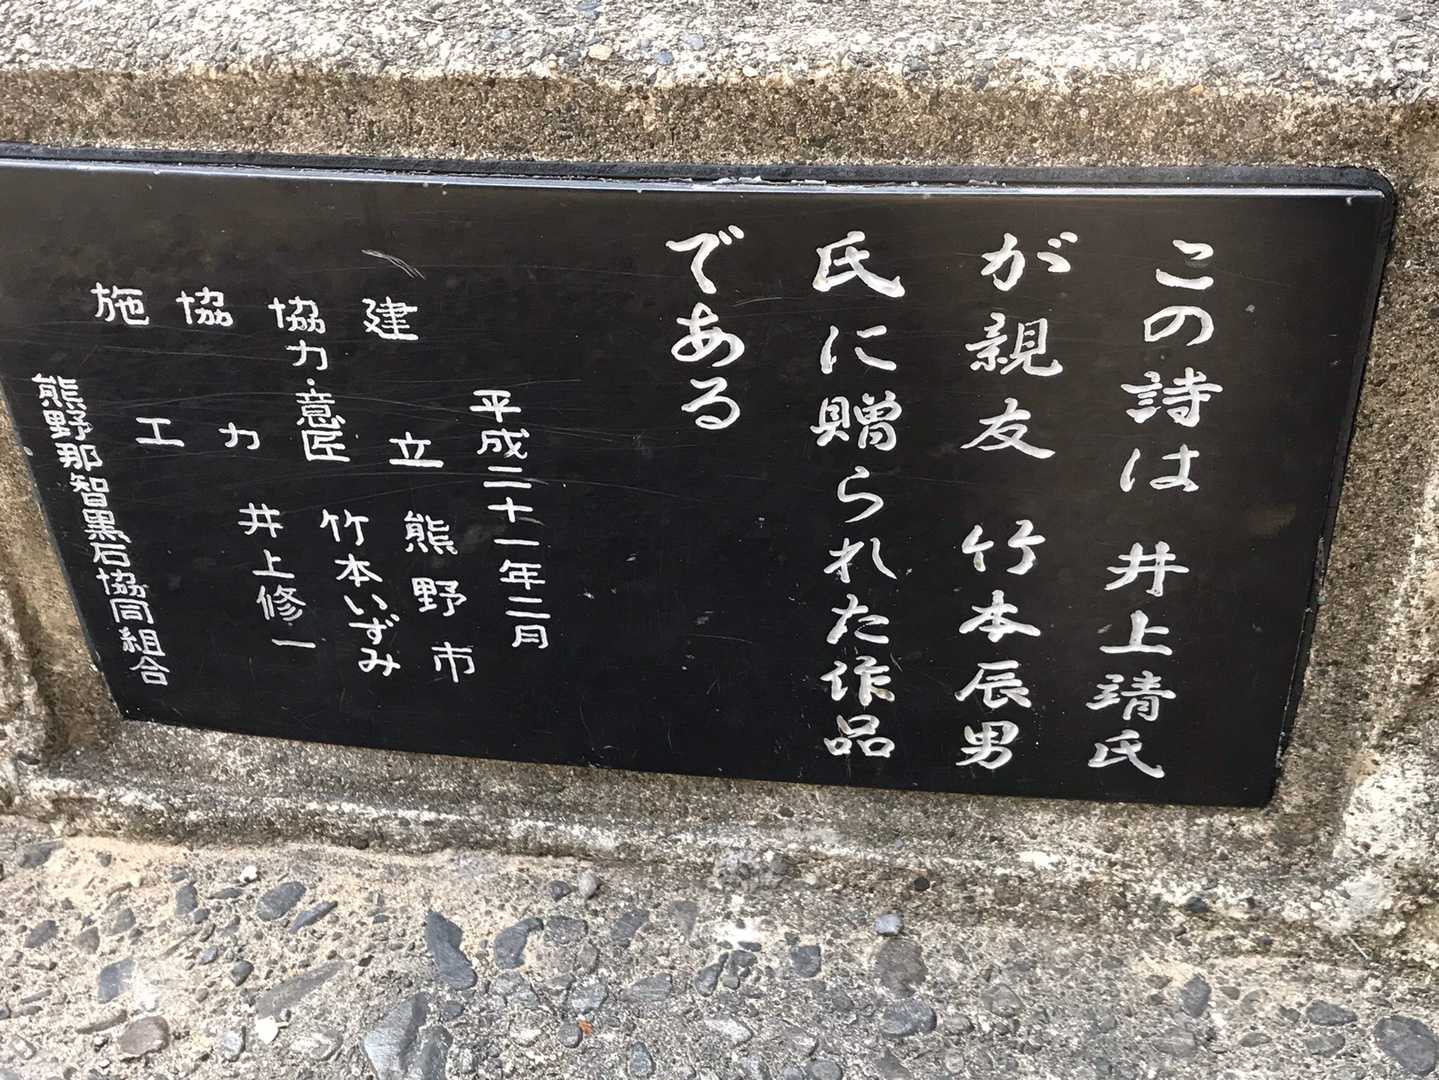 この詩は 井上靖氏
が親友 竹本辰男
氏に贈られた作品
である
平成二十一年二月
建立 熊野市
協力・意匠 竹本いずみ
協力 井上修一
施工 熊野那智黒石協同組合